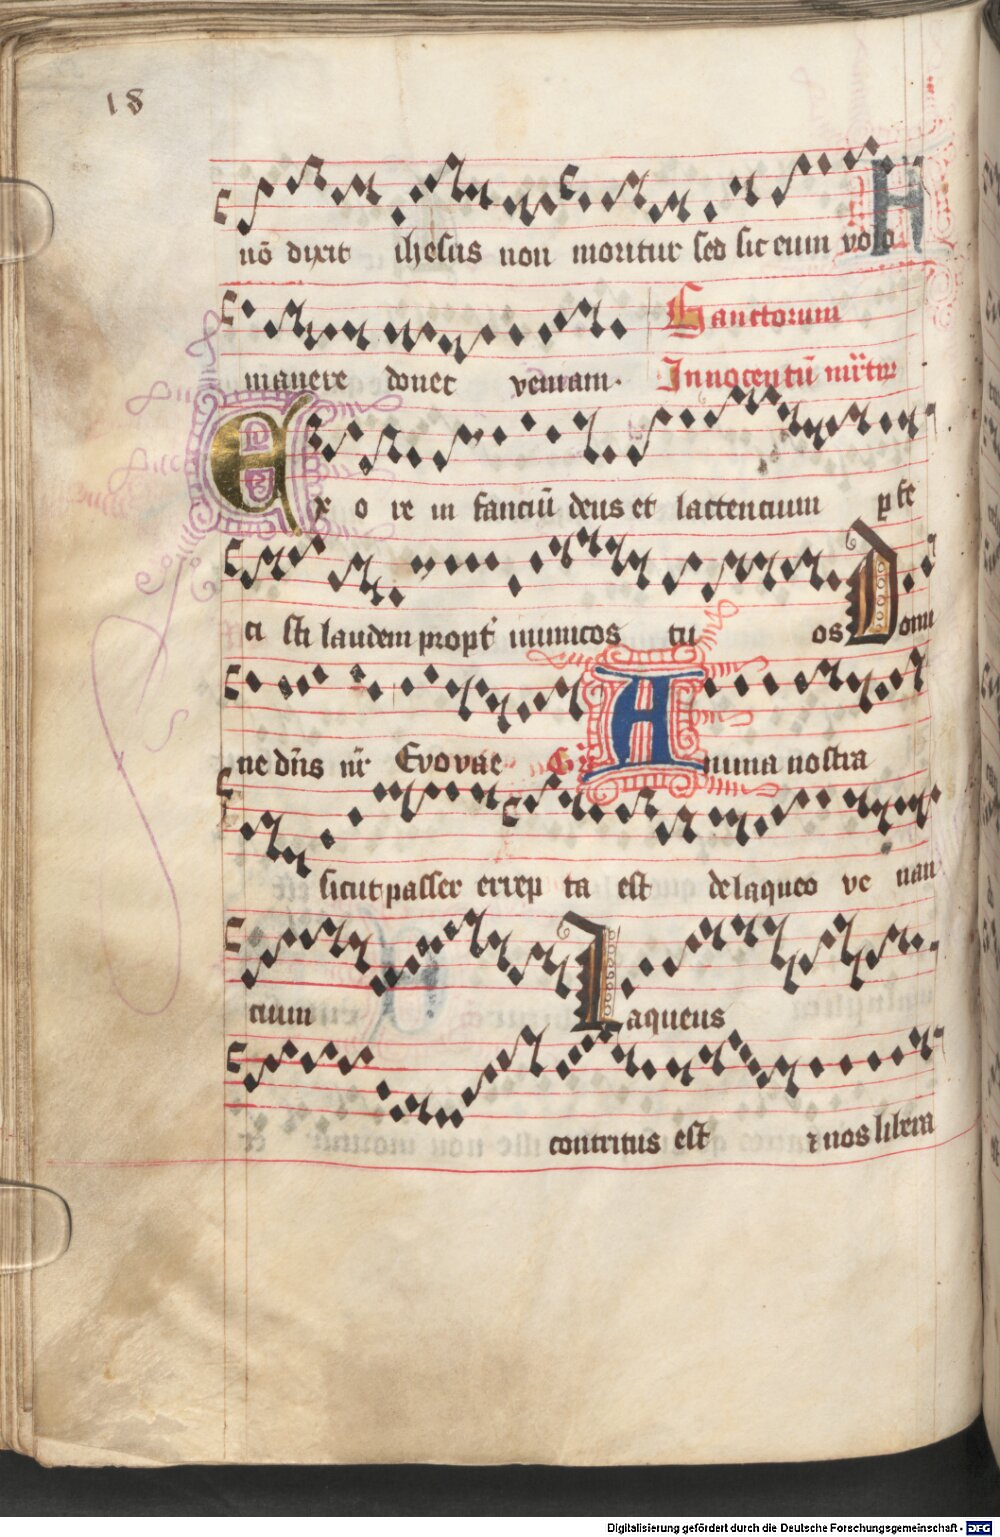 18
nō dixit ihesus non moritur sed sic eum volo
manere donec veniam. Sanctorum
Innocentū mr̄tur
Ex o re in fanciū deus et lactencium ꝑ fe
ci sti laudem propt̄ inimicos tu os Domi
ne dn̄s nr̄ Evovae Gr̄ Anima nostra
sicut passer errep ta est delaqueo ve nan
cium Laqueus
contritus est ⁊ nos libera
Digitalisierung gefördert durch die Deutsche Forschungsgemeinschaft - DFG